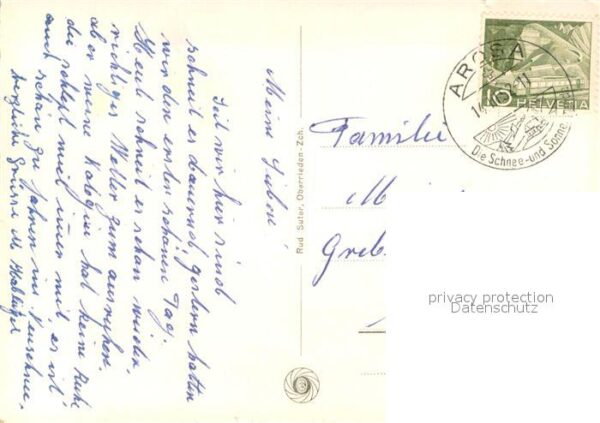 Meine Lieben!
Seit wir hier sind
schneit es dauernd, gestern hatten
wir den ersten schönen Tag.
Heut schneit es schon wieder,
richtiges Wetter zum ausruhen.
aber meine Kollegin hat keine Ruhe
die schlept mich immer mit, es ist
auch schön zu fahren im Neuschnee,
herzliche Grüsse M.
Rud. Suter, Oberrieden-Zch.
HELVETIA
10
AROSA
Die Schnee- und Sonne
Familie
privacy protection
Datenschutz